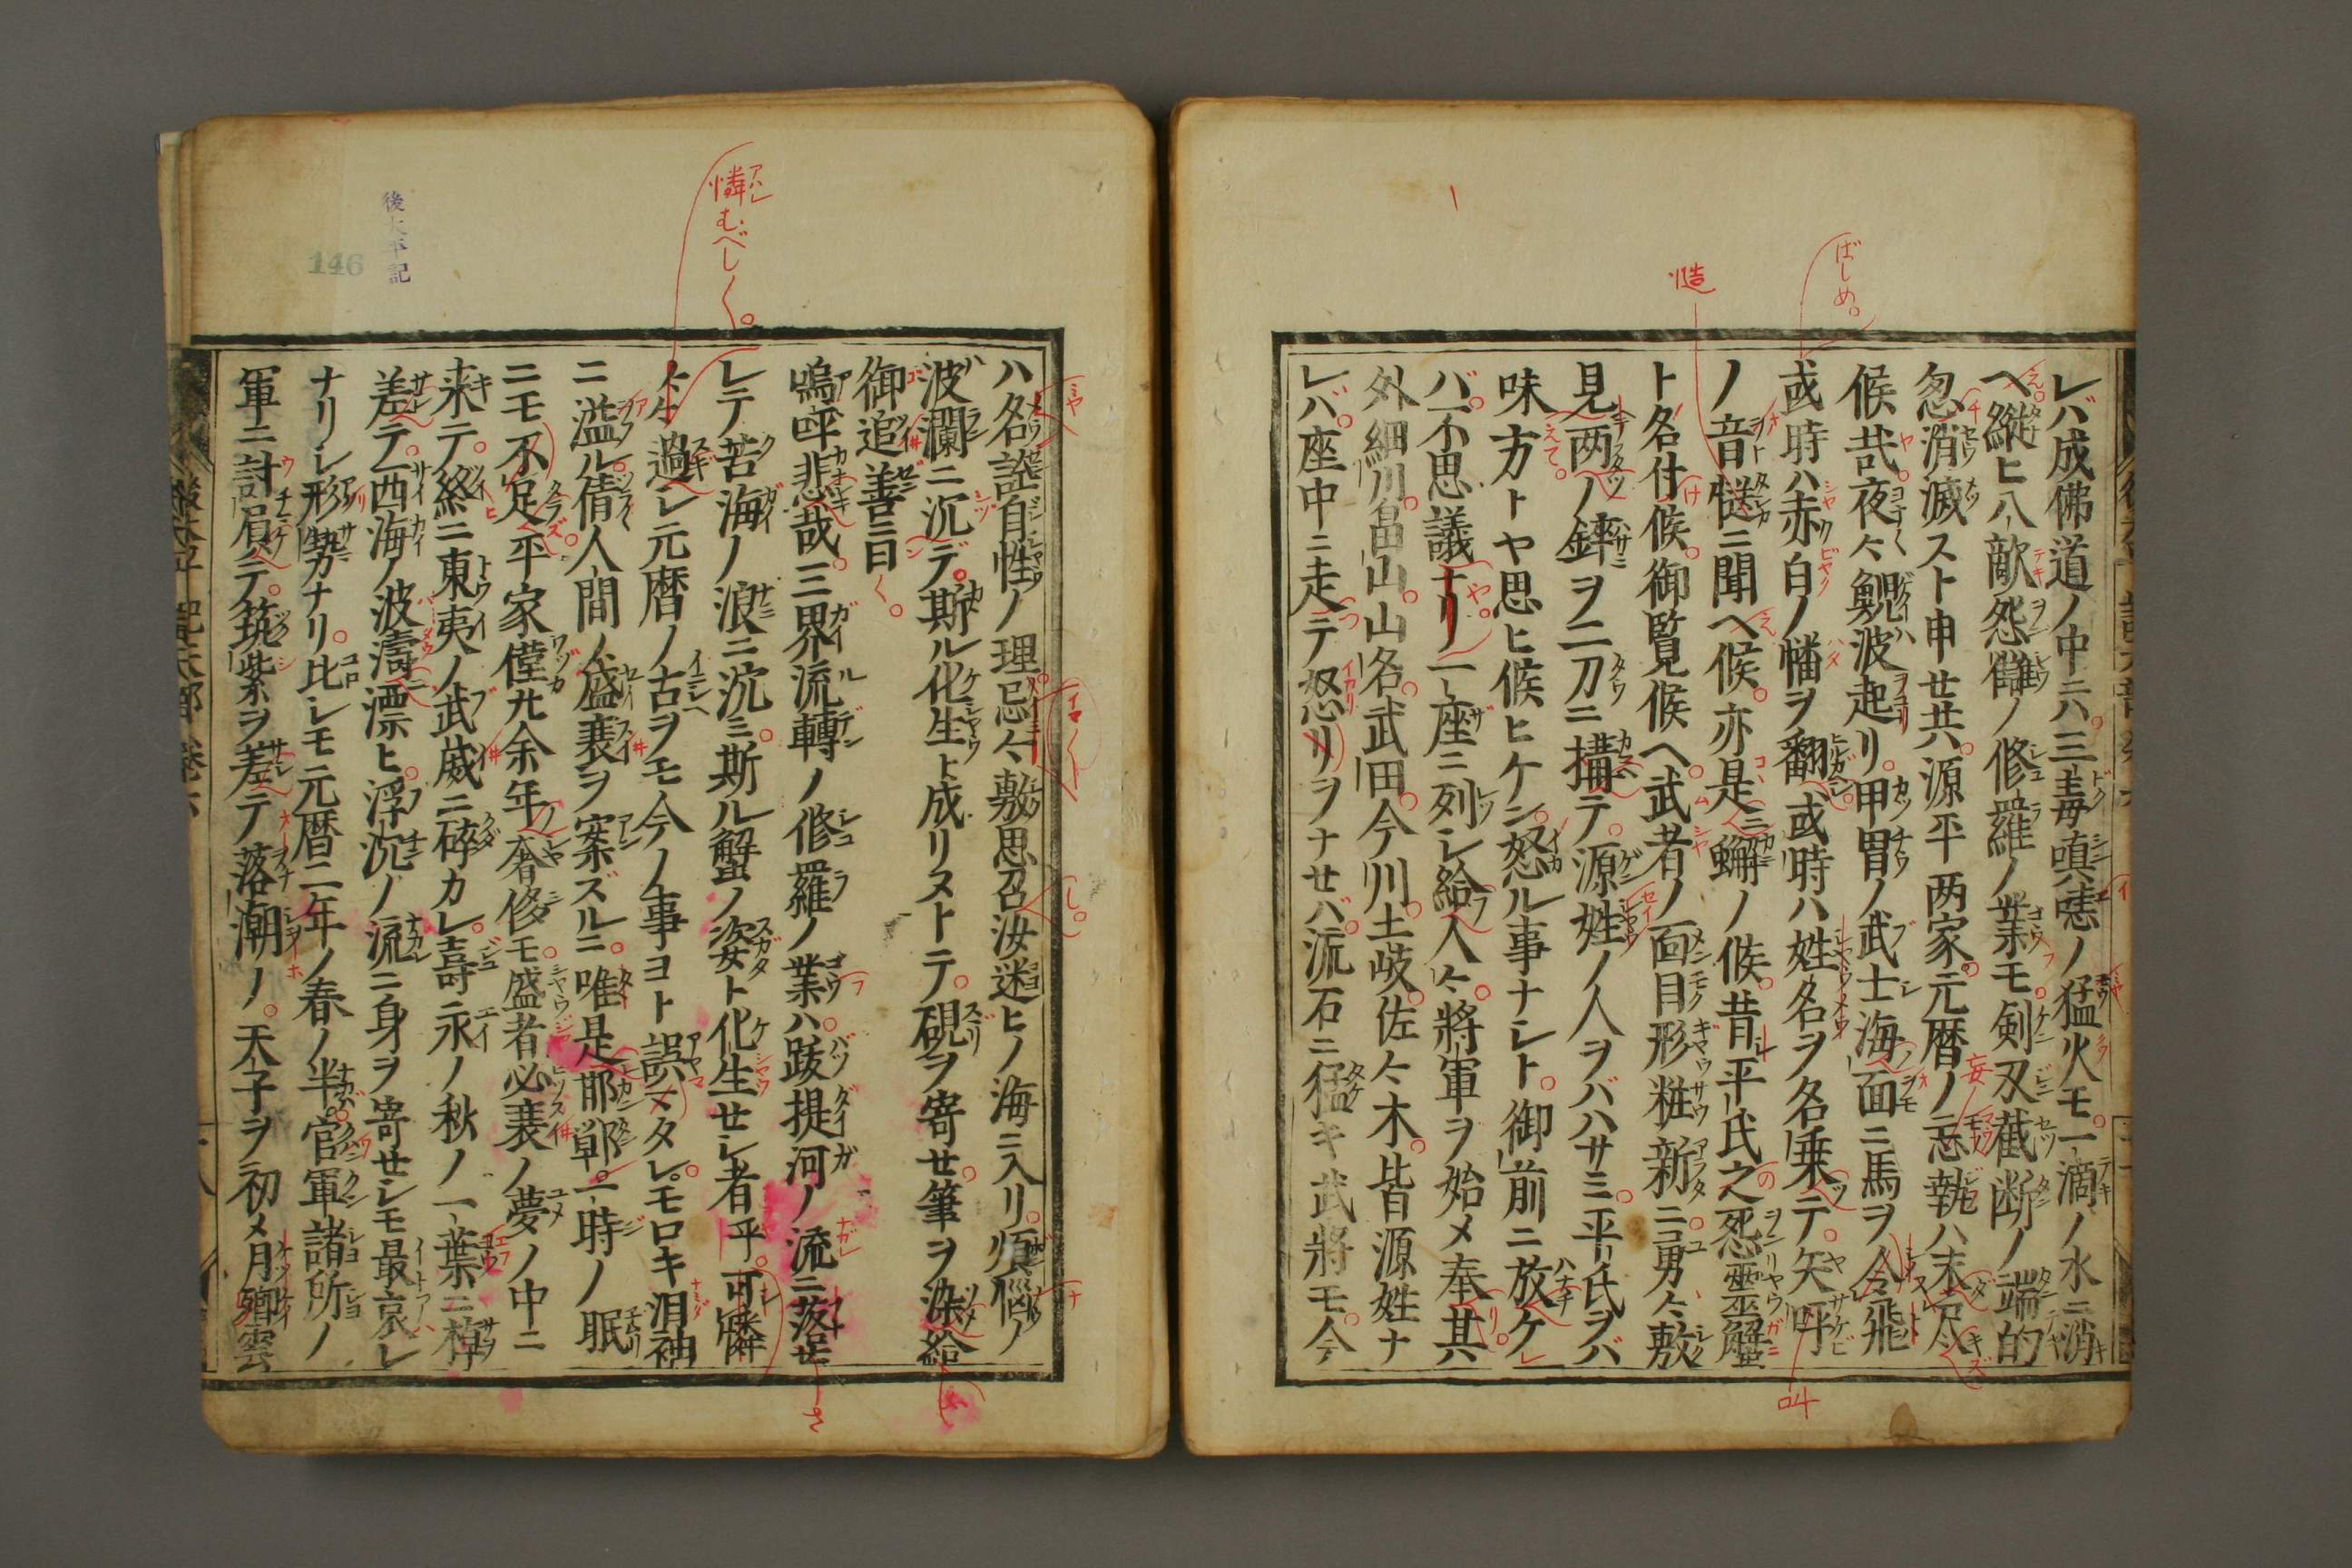 レバ成佛道ノ中ニハ三毒嗔恚ノ猛火モ一滴ノ水ニ消
ヘ縦ヒ八敵怨讎ノ修羅ノ業モ剣刃截断ノ端的
忽消滅スト申せ共源平両家元暦ノ忘執ハ末尽
候哉夜々鯢波起リ甲冑ノ武士海面ニ馬ヲ令飛
或時ハ赤白ノ幡ヲ翻或時ハ姓名ヲ名乗テ矢呼
ノ音慥ニ聞ヘ候亦是ニ蟹ノ候昔平氏之死霊蟹
ト名付候御覧候ヘ武者ノ面目形粧新ニ勇々敷
見両ノ鋏ヲ二刀ニ構テ源姓ノ人ヲバハサミ平氏ヲバ
味方トヤ思ヒ候ヒケン怒ル事ナレト御前ニ放ケ
バ不思議ナリノ一座ニ列レ給人々將軍ヲ始メ奉其
外細川畠山山名武田今川土岐佐々木皆源姓ナ
レバ座中ニ走テ怒リヲナせバ流石ニ猛キ武將モ今
ハ名詮自性ノ理忌々敷思召汝迷ヒノ海ニ入リ煩悩ノ
波瀾ニ沉デ斯ル化生ト成リヌトテ硯ヲ寄せ筆ヲ染給
御追善ニ曰
嗚呼悲哉三界流轉ノ修羅ノ業ハ跋提河ノ流ニ落せ
レテ苦海ノ浪ニ沉ミ斯ル蟹ノ姿ト化生せレ者乎可憐
々々過レ元暦ノ古ヲモ今ノ事ヨト誤マタレモロキ泪袖
ニ溢ル倩人間ノ盛衰ヲ案ズルニ唯是邯鄲一時ノ眠
ニモ不足平家僅廿余年奢侈モ盛者必衰ノ夢ノ中ニ
来テ終ニ東夷ノ武威ニ碎カレ壽永ノ秋ノ一葉ニ棹
差テ西海ノ波濤ニ漂ヒ浮沉ノ流ニ身ヲ寄せレモ最哀レ
ナリレ形勢ナリ比レモ元暦二年ノ春ノ半官軍諸所ノ
軍ニ討肩テ筑紫ヲ差テ落潮ノ天子ヲ初メ月卿雲
ばしめ。
慥
叫
憐むべし〱。
後太平記
146